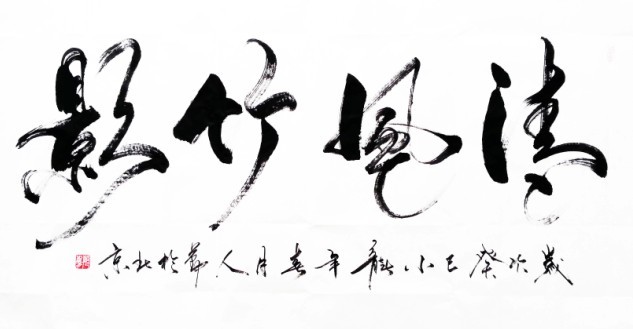 清風竹影
歲次癸巳小龍年春月人華於北京